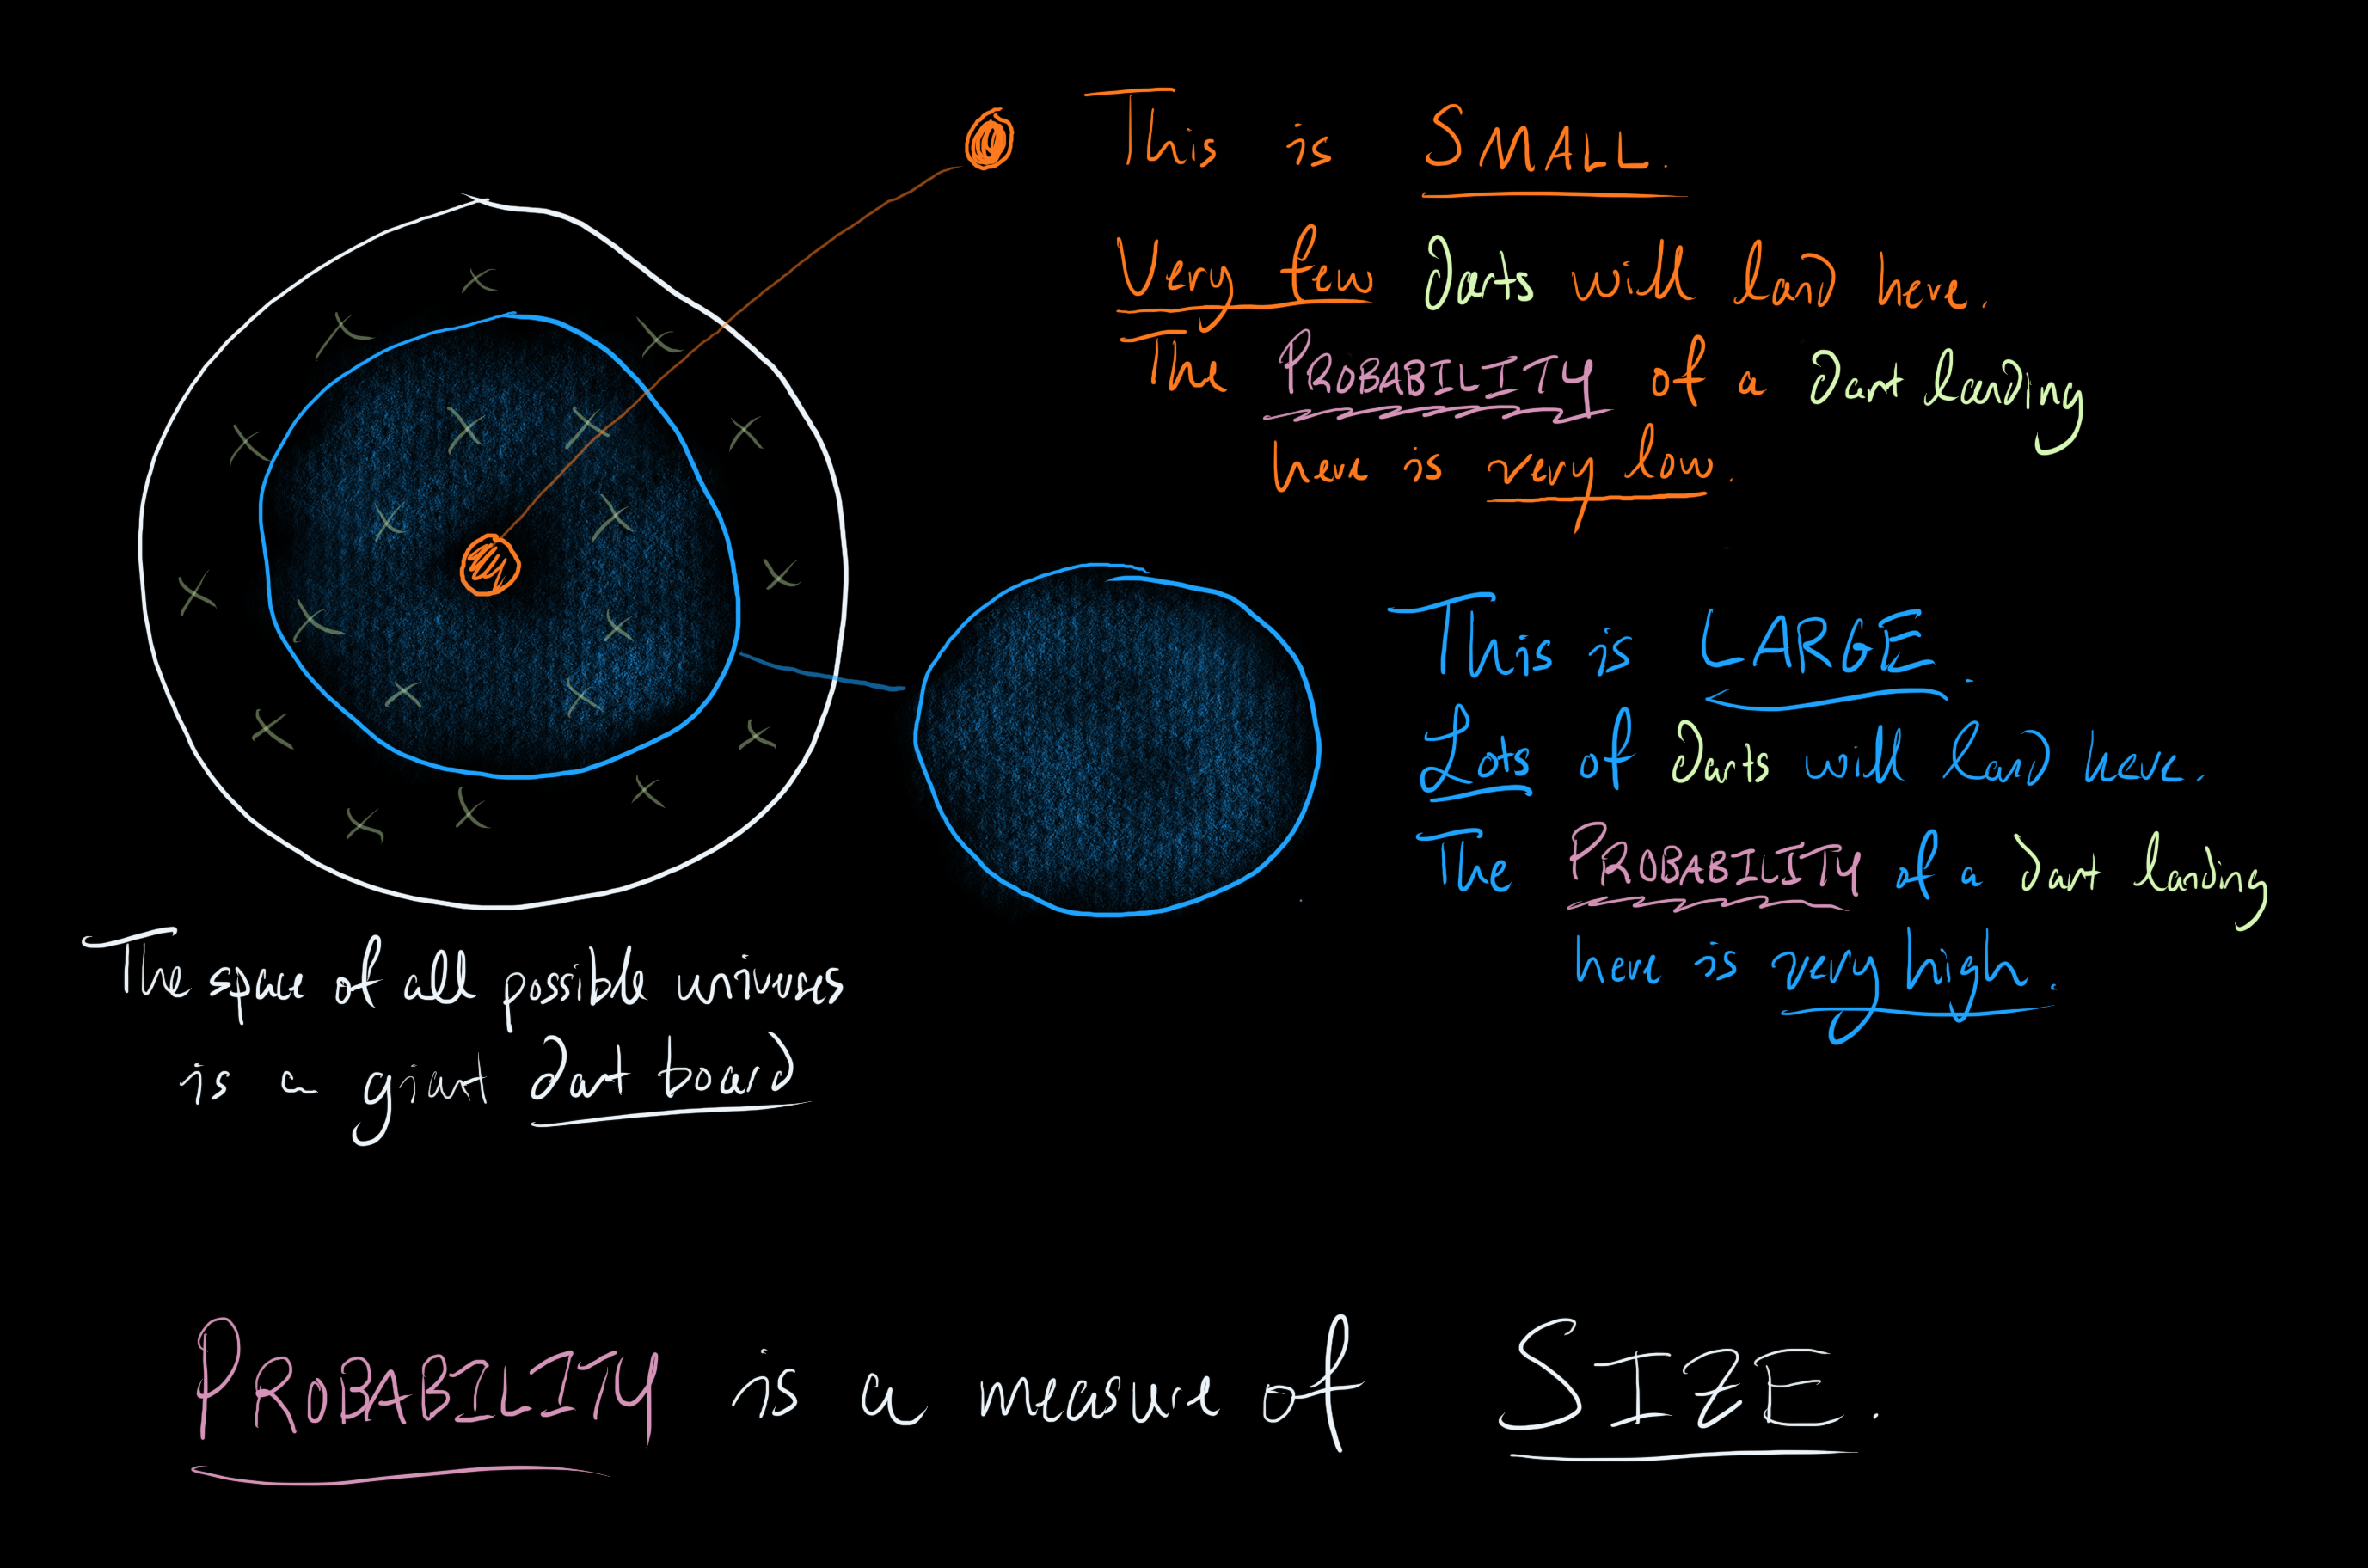 This is SMALL.
Very few darts will land here.
The PROBABILITY of a dart landing
here is very low.
This is LARGE.
Lots of darts will land here.
The PROBABILITY of a dart landing
here is very high.
The space of all possible universes
is a giant dart board
PROBABILITY is a measure of SIZE.